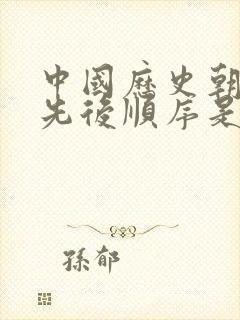 中國歷史朝
先後順序是
孫郁